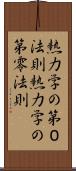 熱力学の第０
法則熱力学の
第零法則